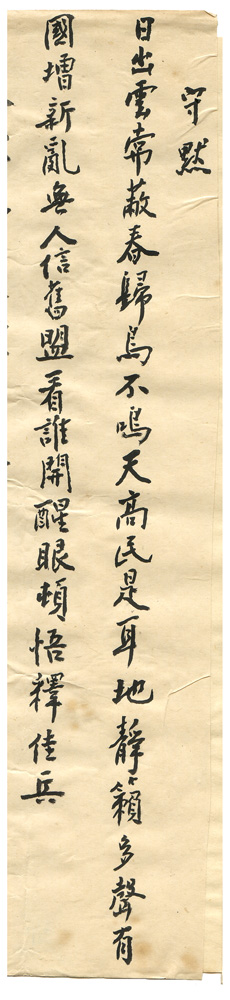 守默
日出雲常蔽春歸鳥不鳴天高民是耳地靜籟多聲有
國增新亂無人信舊盟看誰開醒眼頓悟釋佳兵